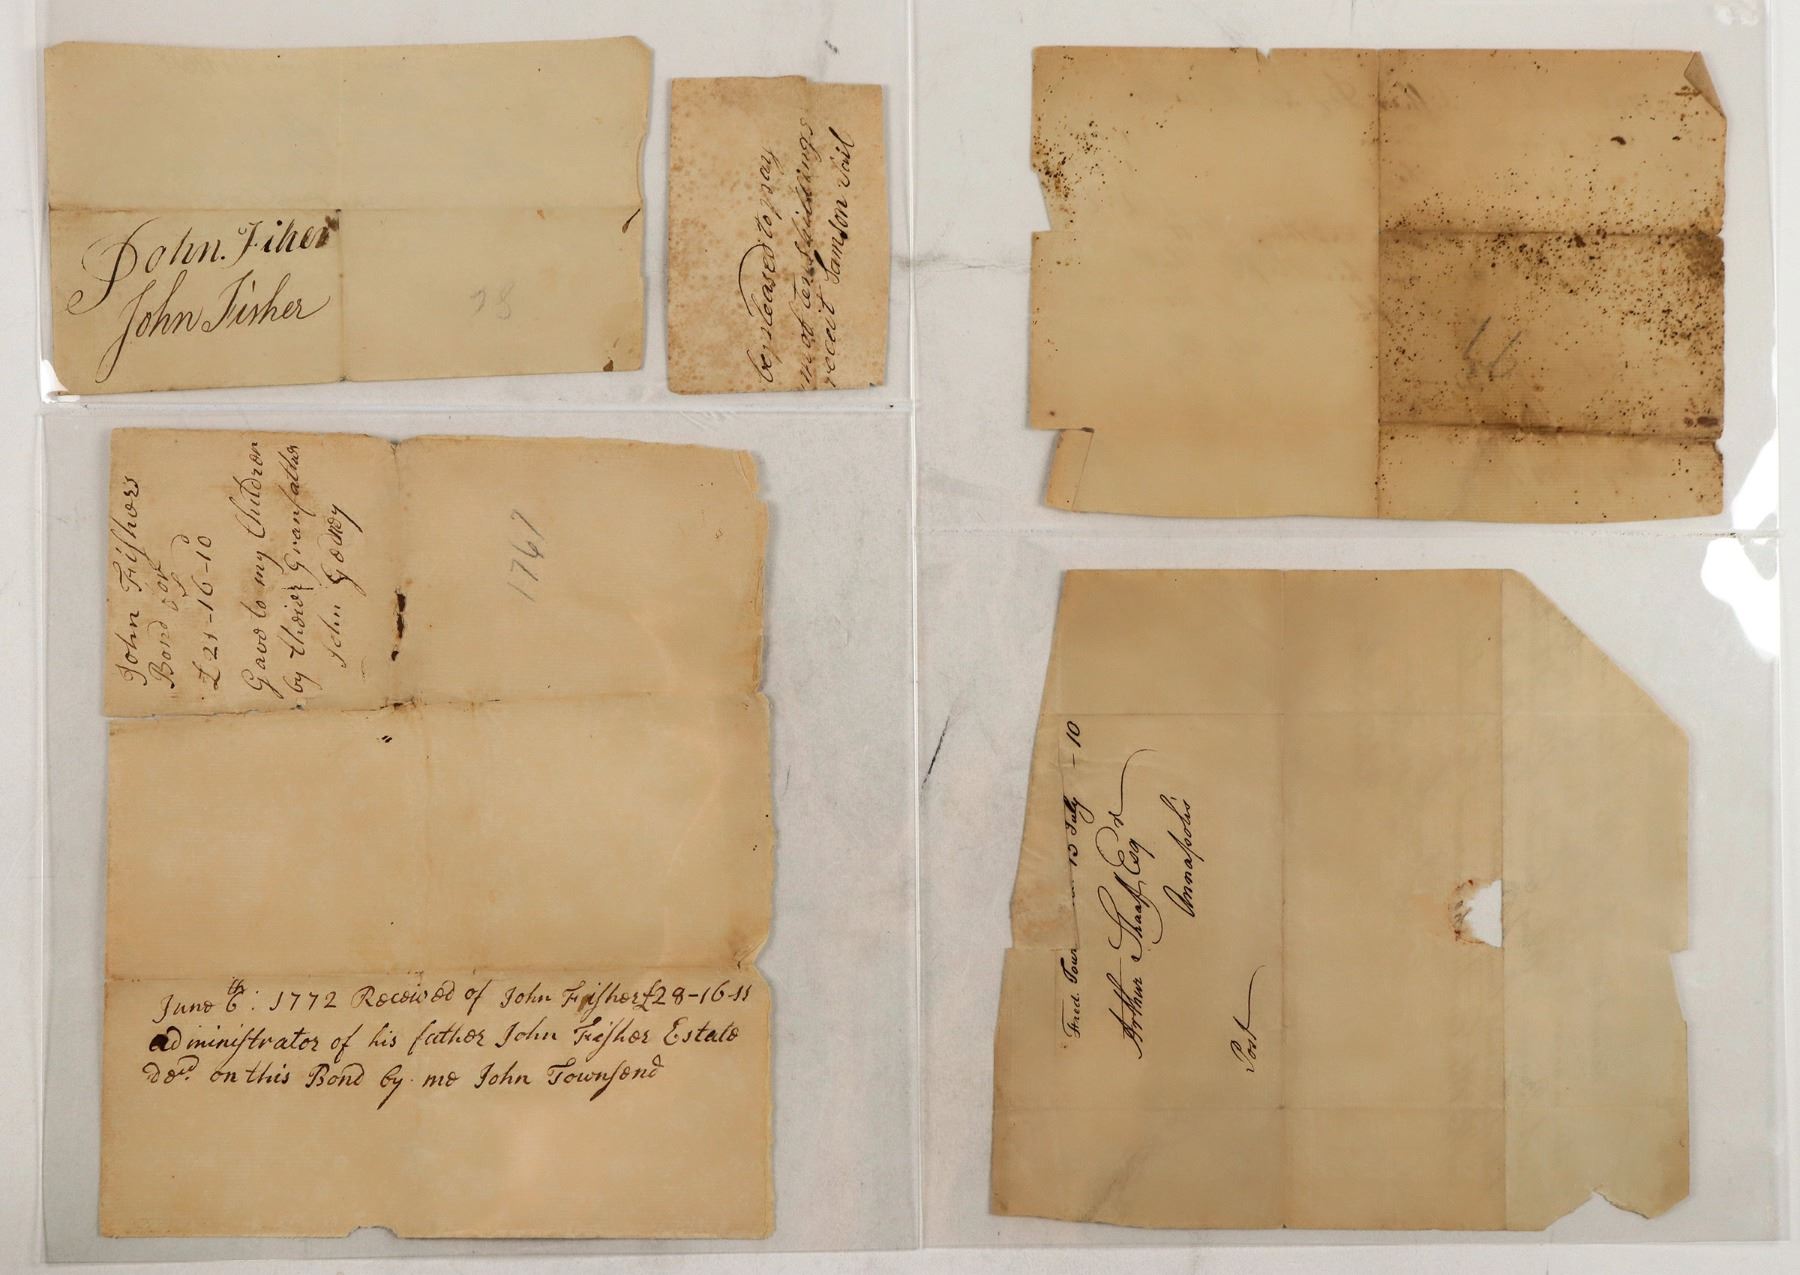 John. Fiher
John Fisher
28
be pleased to pay
ten shillings
receit Samson Sail
John Fishers
Bond for
£ 21-16-10d
Gave to my Children
by theier Granfather
John Gedney
1767
June 6th: 1772 Received of John Fisher £28-16-11
administrator of his father John Fisher Estate
Decd. on this Bond by me John Townsend
Fred. Town 13 July - 10
Arthur Shaaff Esqr
Annapolis
Post